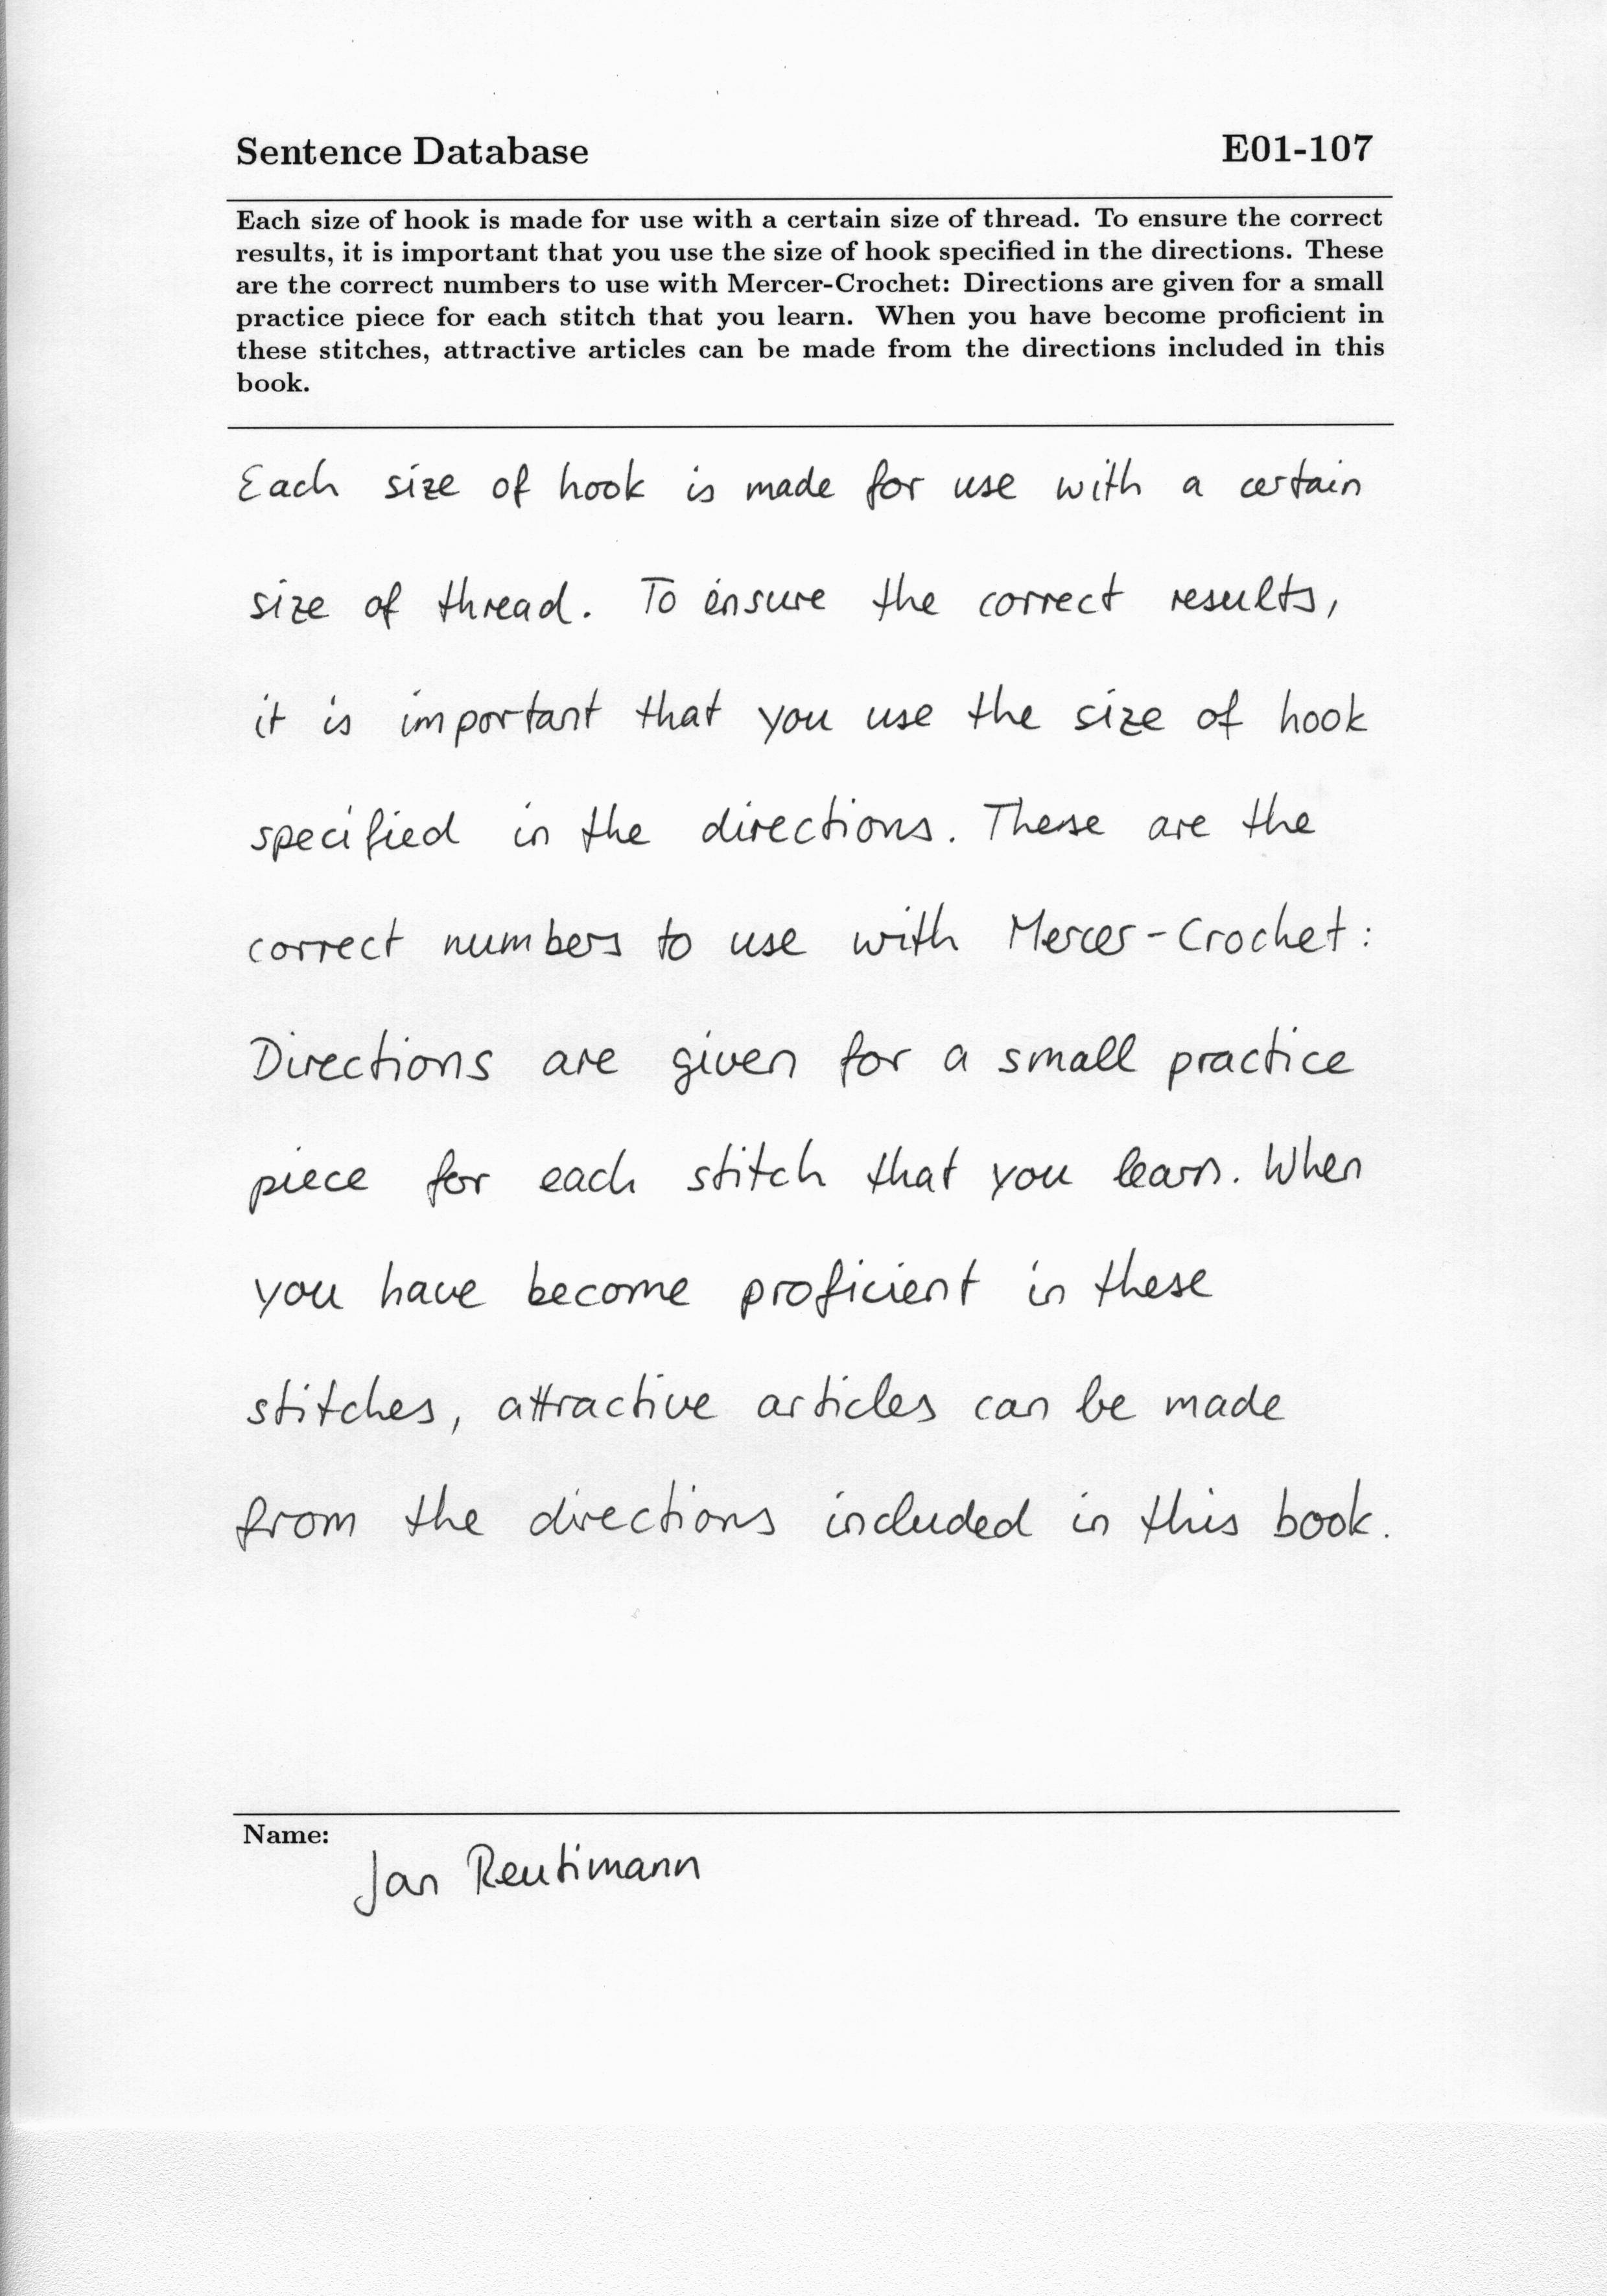 Sentence Database E01-107
Each size of hook is made for use with a certain size of thread. To ensure the correct
results, it is important that you use the size of hook specified in the directions. These
are the correct numbers to use with Mercer-Crochet: Directions are given for a small
practice piece for each stitch that you learn. When you have become proficient in
these stitches, attractive articles can be made from the directions included in this
book.
Each size of hook is made for use with a certain
size of thread. To ensure the correct results,
it is important that you use the size of hook
specified in the directions. These are the
correct numbers to use with Mercer-Crochet:
Directions are given for a small practice
piece for each stitch that you learn. When
you have become proficient in these
stitches, attractive articles can be made
from the directions included in this book.
Name:
Jan Reutimann